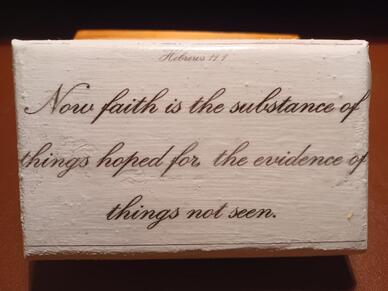 Hebrews 11:1
Now faith is the substance of
things hoped for, the evidence of
things not seen.